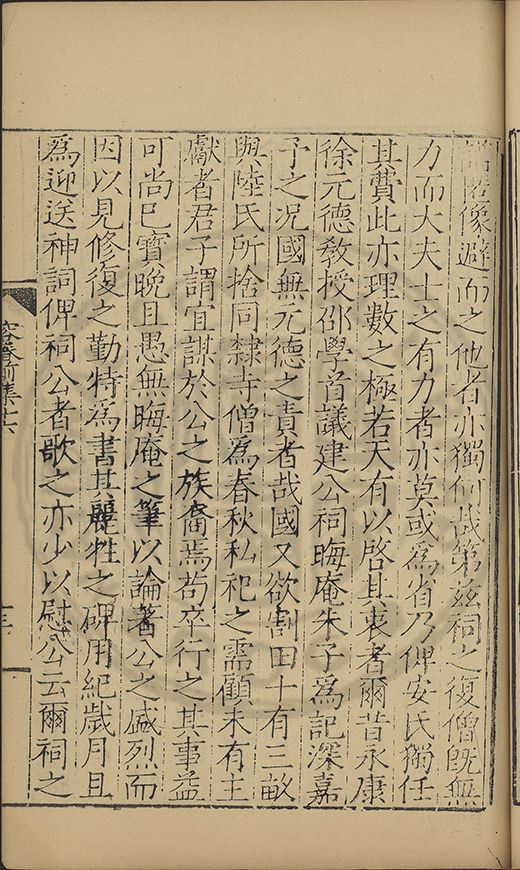 像避而之他者亦獨何哉第茲祠之復僧既無
力而大夫士之有力者亦莫或爲省乃俾安氏獨任
其費此亦理數之極若天有以啓其衷者爾昔永康
徐元德敎授邵學首議建公祠晦庵朱子爲記深嘉
予之况國無元德之責者哉國又欲割田十有三畝
與陸氏所捨同隸寺僧爲春秋私祀之需顧未有主
獻者君子謂宜謀於公之族裔焉苟卒行之其事益
可尚已寶晚且愚無晦庵之筆以論著公之盛烈而
因以見修復之勤特爲書其麗牲之碑用紀歲月且
爲迎送神詞俾祠公者歌之亦少以慰公云爾祠之
容春前集十六